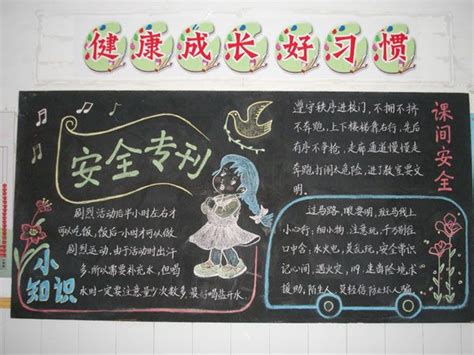 健康成长好习惯
安全专刊
剧烈活动后半小时左右才
可以吃饭,饭后一小时才可以做
剧烈运动,由于活动时出汗
多,所以需要补充水,但喝
水时一定要注意量少次数多,最好喝盐开水
小知识
遵守秩序进校门,不拥不挤
不奔跑,上下楼梯靠右行,先后
有序不争抢,走廊通道慢慢走
奔跑打闹太危险,进了教室要文
明。
课间安全
过马路,眼要明,斑马线上
小心行;细小物,注意玩,千万别往
口中含;水火电,莫乱玩,安全常识
记心间,遇火灾,119,走廊险境求
援助,陌生人,莫轻信防止诈骗